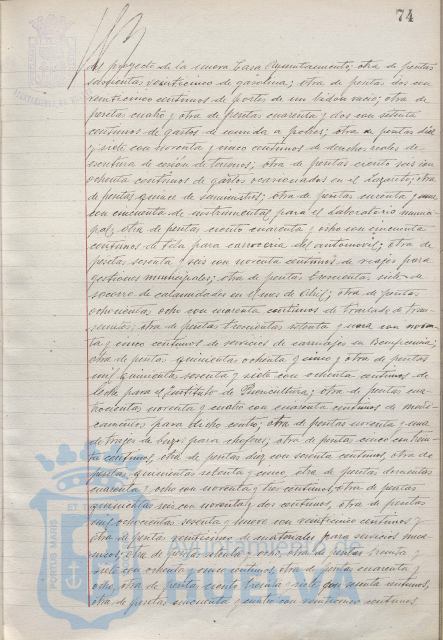 74
del proyecto de la nueva Casa Ayuntamiento; otra de pesetas
veinticinco de gasolina; otra de pesetas dos con
veinticinco centimos de portes de un bidon vacio; otra de
pesetas cuatro y otra de pesetas cuarenta y dos con setenta
centimos de gastos de a pobres; otra de pesetas diez
y siete con noventa y cinco centimos de derechos reales de
escritura de cesión de terrenos; otra de pesetas ciento seis con
ochenta centimos de gastos ocasionados en el Lazareto; otra
de pesetas quince de suministros; otra de pesetas cincuenta y una
con cincuenta de instrumental para el Laboratorio munici-
pal; otra de pesetas ciento cuarenta y ocho con cincuenta
centimos de tela para carroceria del automovil; otra de
pesetas sesenta y seis con noventa centimos de viajes para
gestiones municipales; otra de pesetas trescientas siete de
socorro de calamidades en el mes de Abril; otra de pesetas
ochocientas ocho con cuarenta centimos de traslado de tran-
seuntes; otra de pesetas trescientas setenta y nueve con noven-
ta y cinco centimos de servicios de carruajes en Beneficencia;
otra de pesetas quinientas ochenta y cinco y otra de pesetas
mil quinientas sesenta y siete con ochenta centimos de
leche para el Instituto de Puericultura; otra de pesetas cua-
trocientas noventa y cuatro con cuarenta centimos de medi-
camentos para dicho centro; otra de pesetas noventa y una
de trajes de para chofres; otra de pesetas cinco con trein-
ta centimos, otra de pesetas diez con sesenta centimos, otra de
pesetas quinientas setenta y cinco, otra de pesetas doscientas
cuarenta y ocho con noventa y tres centimos, otra de pesetas
quinientas seis con noventa y dos centimos, otra de pesetas
mil ochocientas sesenta y nueve con veinticinco centimos y
otra de pesetas veinticinco de materiales para servicios muni-
otra de pesetas ochenta y ocho, otra de pesetas treinta y
siete con ochenta y cinco centimos, otra de pesetas cuarenta y
ocho, otra de pesetas ciento treinta y siete con cuarenta centimos,
otra de pesetas cincuenta y cuatro con veinticinco centimos
PORTUS MARIS
HUELVA